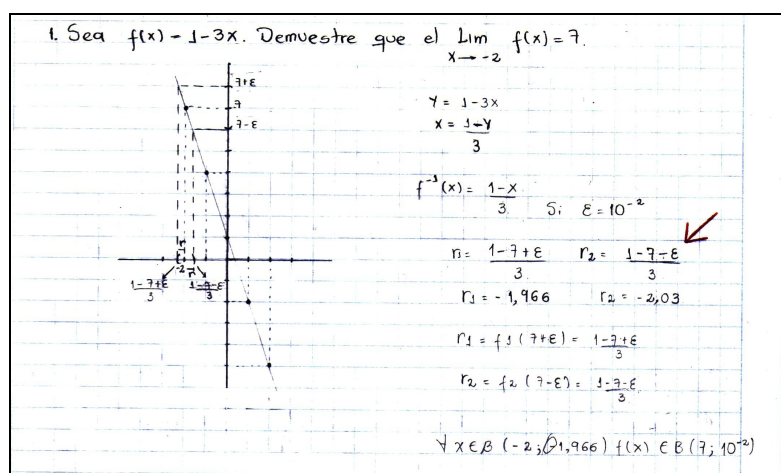 1. Sea f(x) = 1-3x. Demuestre que el Lim f(x) = 7.
x → -2
7+ε
7
7-ε
-2
1-7+ε / 3
1-7-ε / 3
y = 1-3x
x = 1-y / 3
f⁻¹(x) = 1-x / 3 Si ε = 10⁻²
r1 = 1-7+ε / 3 r2 = 1-7-ε / 3
r1 = -1,966 r2 = -2,03
r1 = f1 (7+ε) = 1-7+ε / 3
r2 = f2 (7-ε) = 1-7-ε / 3
∀ x ∈ B (-2; -1,966) f(x) ∈ B (7; 10⁻²)